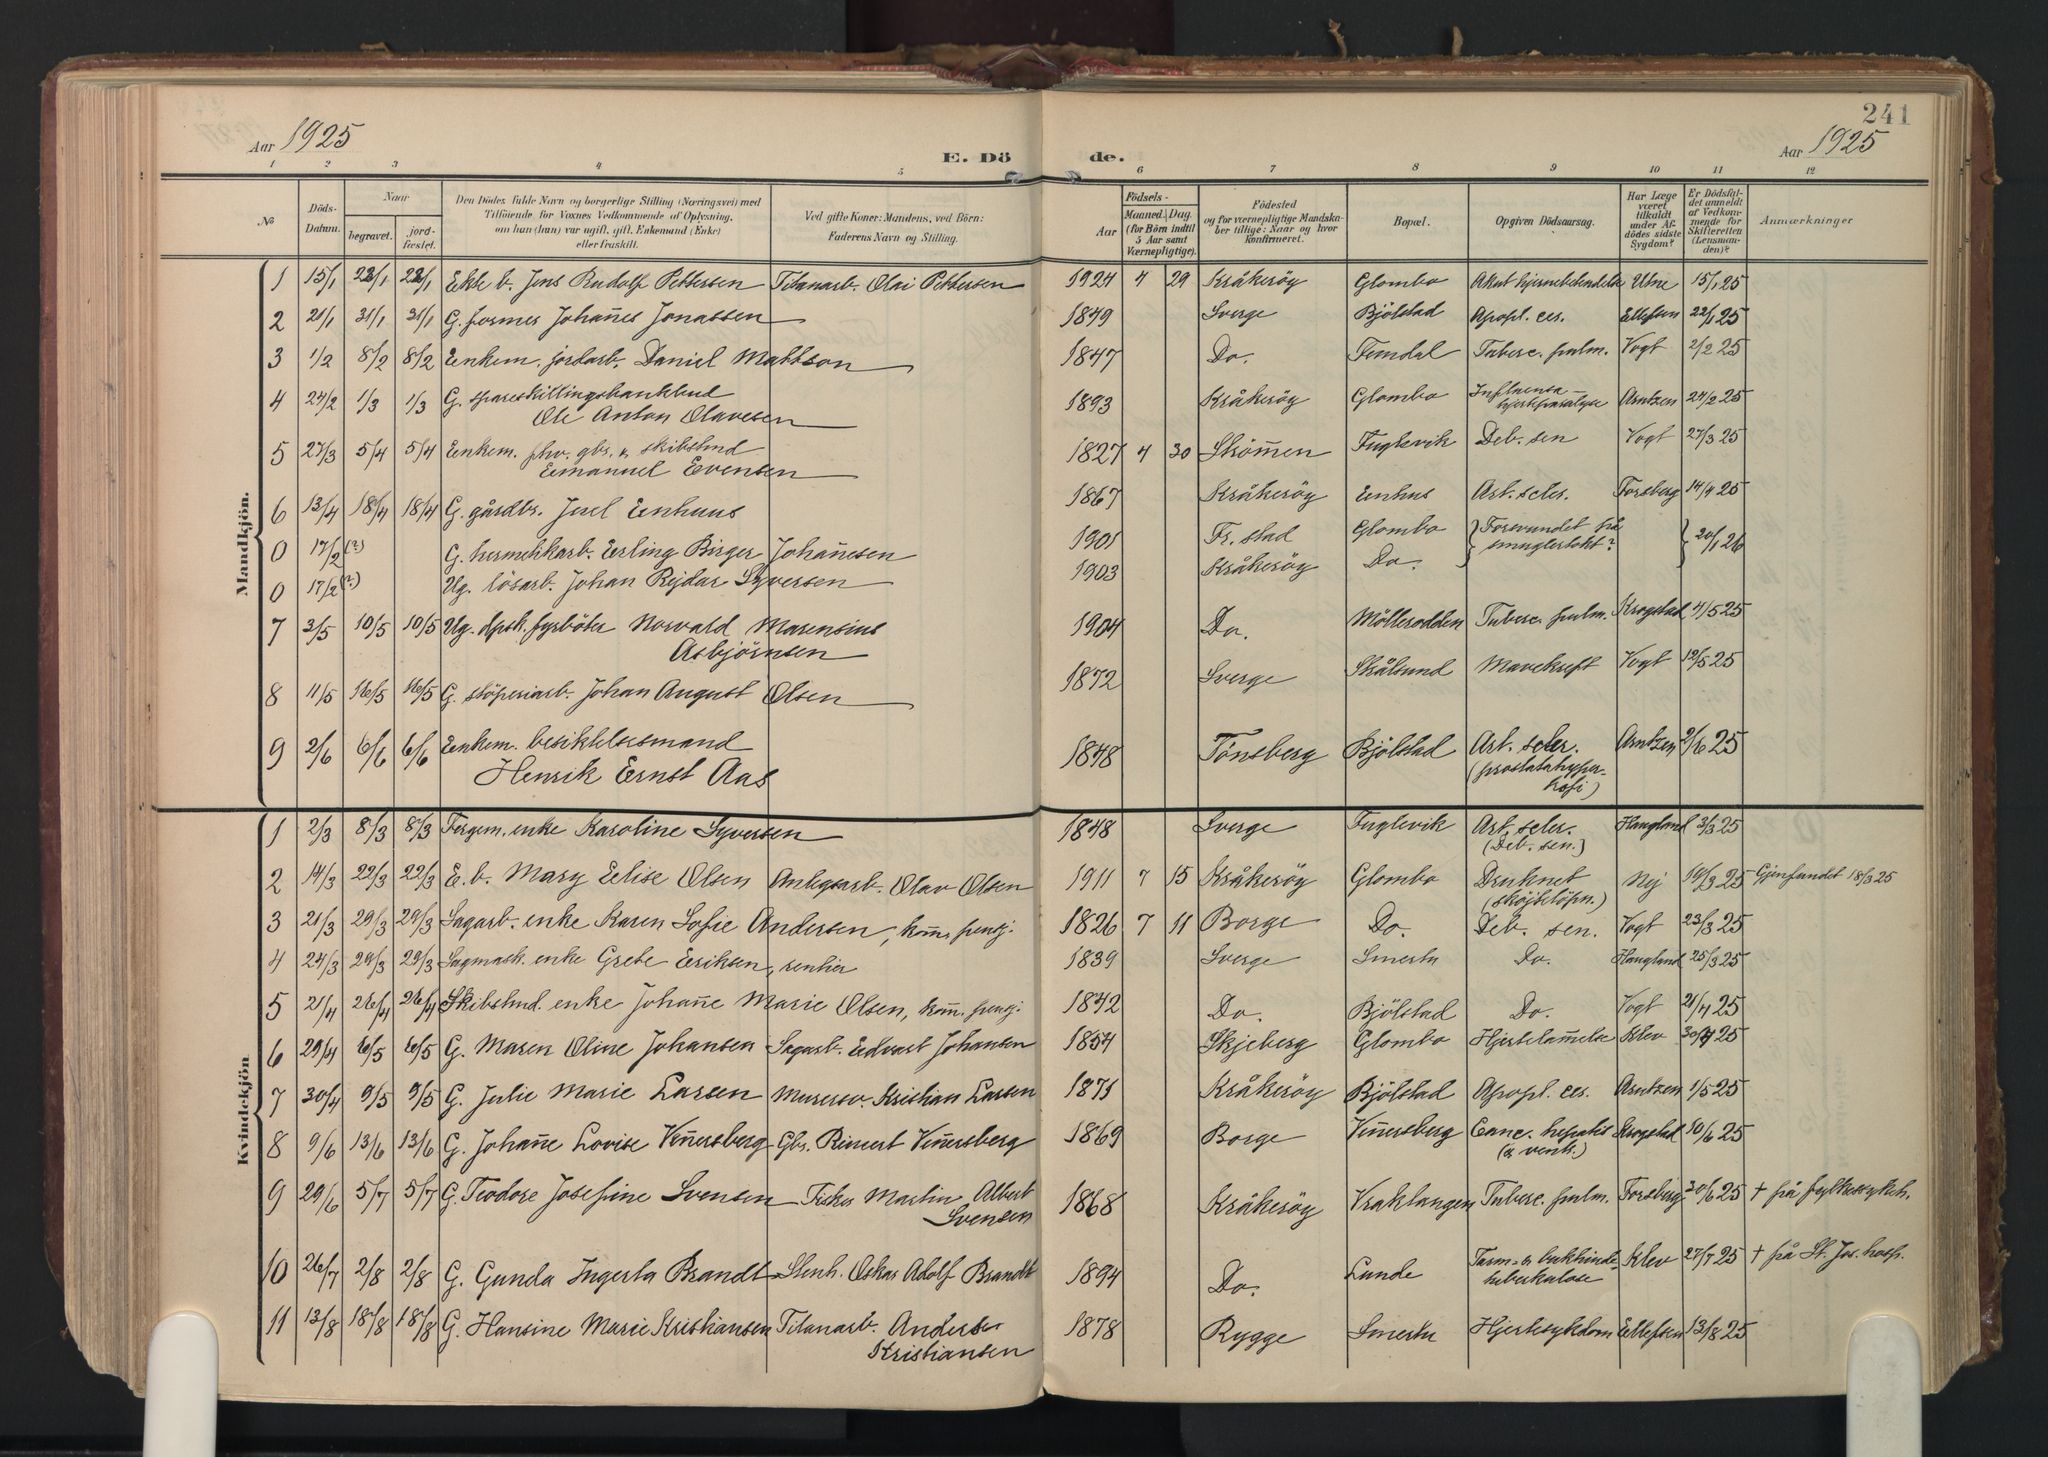 241
Aar 1925 E. Dö de. Aar 1925
1 2 3 4 5 6 7 8 9 10 11 12
№ Döds-Datum. Naar begravet. jord-festet. Den Dödes fulde Navn og borgerlige Stilling (Næringsvei) med Tilföiende for Voxnes Vedkommende af Oplysning, om han (hun) var ugift, gift, Enkemand (Enke) eller fraskilt. Ved gifte Koner: Mandens, ved Börn: Faderens Navn og Stilling. Födsels- Aar Maaned. Dag. (for Börn indtil 5 Aar samt Værnepligtige). Födested og for værnepligtige Mandskaber tillige: Naar og hvor konfirmeret. Bopæl. Opgiven Dödsaarsag. Har Læge været tilkaldt under Afdödes sidste Sygdom? Er Dödsfaldet anmeldt af Vedkommende for Skifteretten (Lensmanden)? Anmærkninger
Mandkjön.
1 15/1 22/1 22/1 Ekte b. Jens Rudolf Pettersen Titanarb. Olai Pettersen 1924 4 29 Kråkeröy Glombo Akut hjernebetendelse Utne 15/1 25
2 21/1 31/1 31/1 G. former Johan̄es Jonassen 1849 Sverge Bjölstad Apopl. cer. Ellefsen 22/1 25
3 1/2 8/2 8/2 Enkem. jordarb. Daniel Mattson 1847 Do. Femdal Tuberc. pulm. Vogt 2/2 25
4 24/2 1/3 1/3 G. spareskillingsbankbud
Ole Anton Olavesen 1893 Kråkeröy Glombo Influensa hjerteparalyse Arntzen 24/2 25
5 27/3 5/4 5/4 Enkem. fhv. gbr. & skibstmd
Emanuel Evensen 1827 4 30 Fuglevik Deb. sen Vogt 27/3 25
6 13/4 18/4 18/4 G. gårdbr. Juel Enhuus 1867 Kråkeröy Enhus Art. scler. Forsberg 14/4 25
0 17/2 (?) G. hermetikarb. Erling Birger Johan̄esen 1901 Fr. stad Glombo Forsvundet på smuglertokt? 20/1 26
0 17/2 (?) Ug. lösarb. Johan Rejdar Syversen 1903 Kråkeröy Do.
7 3/5 10/5 10/5 Ug. dpsk. fyrböter Norvald Marensius
Asbjörnsen 1904 Do. Möllerodden Tuberc. pulm. Krogstad 4/5 25
8 11/5 16/5 16/5 G. stöperiarb. Johan August Olsen 1872 Sverge Skålsund Mavekreft Vogt 12/5 25
9 2/6 6/6 6/6 Enkem. besiktelsesmand
Henrik Ernst Aas 1848 Tönsberg Bjölstad Art. scler. (prostatahypertrofi) Arntzen 2/6 25
Kvindekjön
1 2/3 8/3 8/3 Fergem. enke Karoline Syversen 1848 Sverge Fuglevik Art. scler. (Deb. sen.) Haugland 3/3 25
2 14/3 22/3 22/3 E. b. Mary Elise Olsen Anlegsarb. Olav Olsen 1911 7 15 Kråkeröy Glombo Druknet (skøjteløpn.) Nej 19/3 25 Gjenfundet 18/3 25
3 21/3 29/3 29/3 Sagarb. enke Karen Sofie Andersen, kom̄. pensj. 1826 7 11 Borge Do. Deb. sen. Vogt 23/3 25
4 24/3 29/3 29/3 Sagmask. enke Grete Eriksen, rentier 1839 Sverge Smertu Do. Haugland 25/3 25
5 21/4 26/4 26/4 Skibstmd. enke Johan̄e Marie Olsen, kom̄. pensj. 1842 Do. Bjölstad Do. Vogt 21/4 25
6 29/4 6/5 6/5 G. Maren Oline Johansen Sagarb. Edvart Johansen 1854 Skjeberg Glombo Hjertelam̄else Klev 30/4 25
7 30/4 9/5 9/5 G. Julie Marie Larsen Murersv. Kristian Larsen 1871 Kråkeröy Bjölstad Apopl. cer. Arntzen 1/5 25
8 9/6 13/6 13/6 G. Johan̄e Lovise Vin̄ersberg Gbr. Rinert Vin̄ersberg 1869 Borge Vin̄ersberg Canc. hepatis (& ventr.) Krogstad 10/6 25
9 29/6 5/7 5/7 G. Teodore Josefine Svensen Fisker Martin Albert
Svensen 1868 Kråkeröy Vraklangen Tuberc. pulm. Forsberg 30/6 25 † på fylkessykeh.
10 26/7 2/8 2/8 G. Gunda Ingerta Brandt Stenh. Oskar Adolf Brandt 1894 Do. Lunde Tarm- & bukhindetuberkulose Klev 27/7 25 † på St. Jos. hosp.
11 13/8 18/8 18/8 G. Hansine Marie Kristiansen Titanarb. Anders
Kristiansen 1878 Rygge Smertu Hjertesykdom Ellefsen 13/8 25